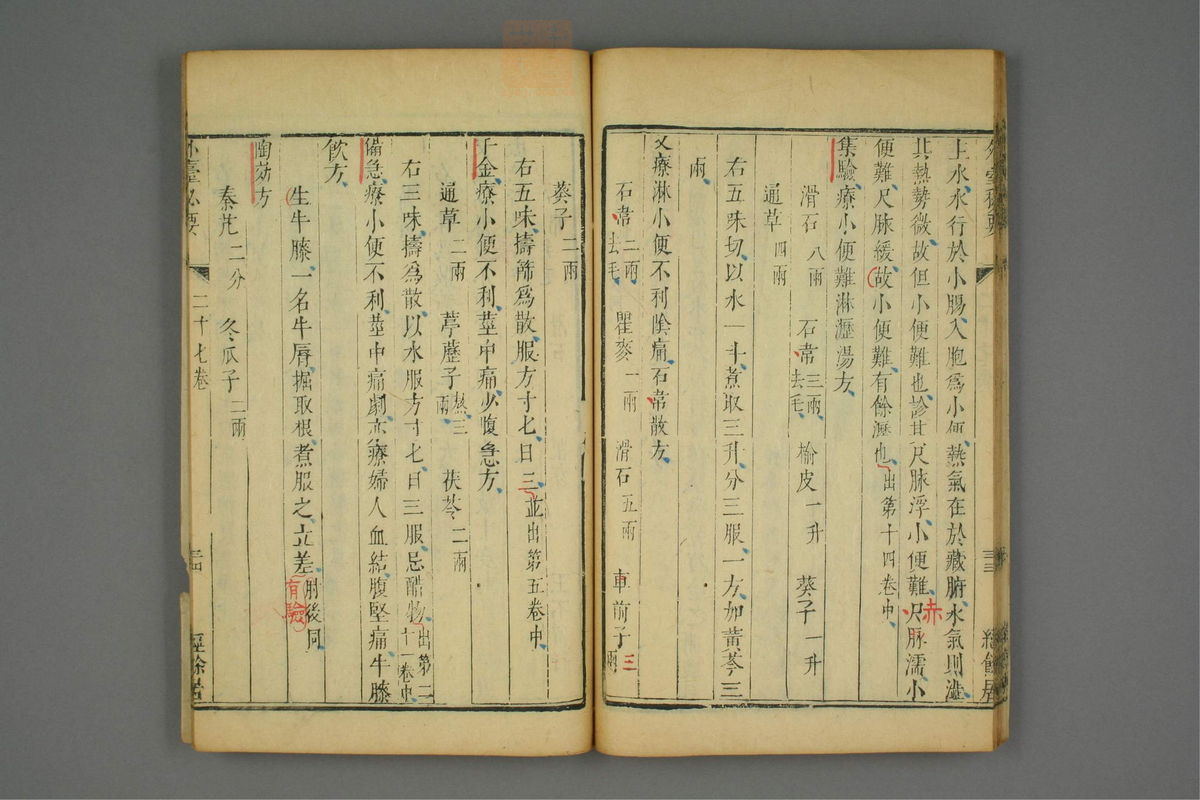 上水水行於小腸入胞為小便熱氣在於藏腑水氣則澁
其熱勢微故但小便難也診其尺脉浮小便難尺脉濡小
赤
便難尺脉緩故小便難有餘瀝也出第十四卷中
集驗療小便難淋瀝湯方
滑石八兩 石常三兩去毛 榆皮一升 葵子一升
通草四兩
右五味切以水一斗煮取三升分三服一方加黃芩三
兩
又療淋小便不利陰痛石常散方
石常二兩去毛 瞿麥一兩 滑石五兩 車前子三兩
葵子二兩
右五味擣篩為散服方寸匕日三並出第五卷中
千金療小便不利莖中痛少腹急方
通草二兩 葶藶子熬三兩 茯苓二兩
右三味擣為散以水服方寸匕日三服忌酷物出第二十一卷中
備急療小便不利莖中痛劇亦療婦人血結腹堅痛牛膝
飲方
生牛膝一名牛脣掘取根煮服之立差肘後同
有驗
陶効方
秦艽二分 冬瓜子二兩
外臺必要 二十七卷 三四 經餘居